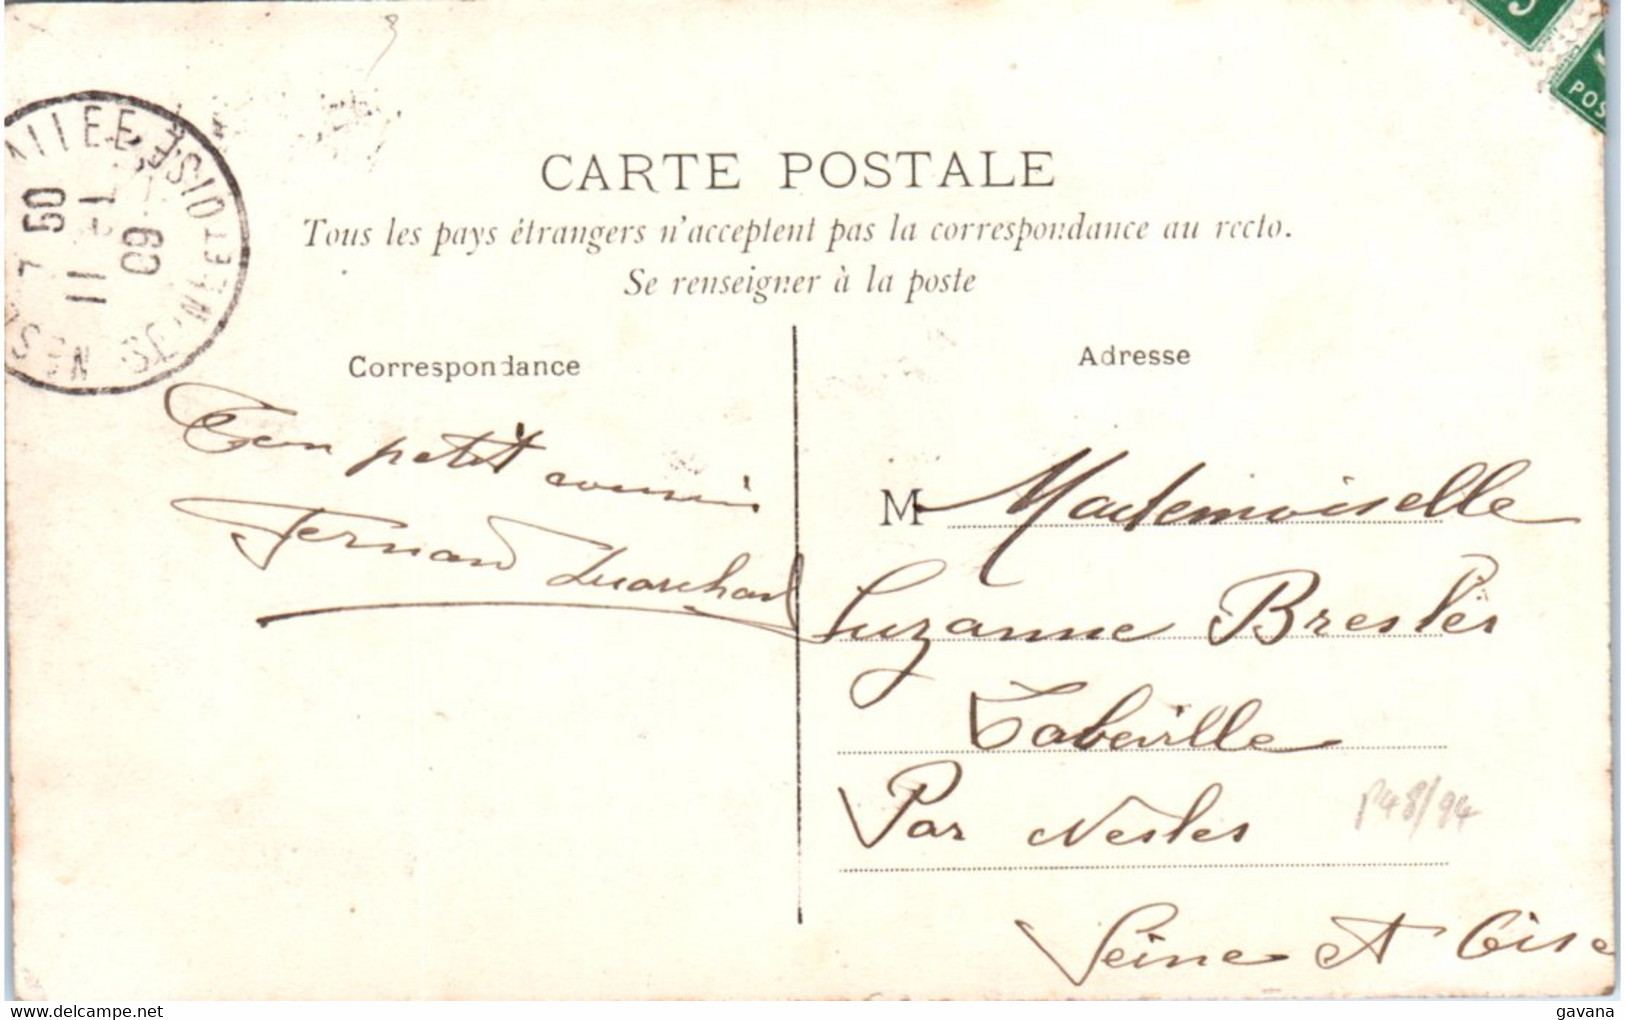 CARTE POSTALE
Tous les pays étrangers n'acceptent pas la correspondance au recto.
Se renseigner à la poste
Correspondance
Adresse
Ton petit cousin
Fernand Marchand
M Mademoiselle
Suzanne Breslès
Labeville
Par Nesles
Seine et Oise
P48/94
7 50
11 -1
09
SEINE-ET-OISE
5
POS
delcampe.net
gavana